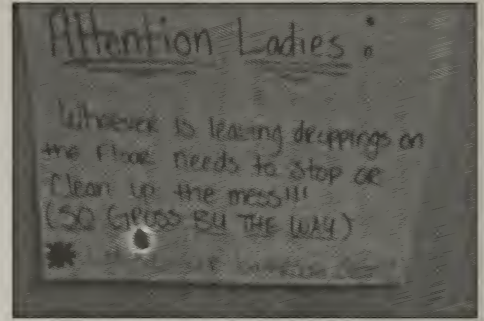 Attention Ladies :
Whoever is leaving droppings on
the floor needs to stop or
Clean up the mess!!!
(SO GROSS BY THE WAY)